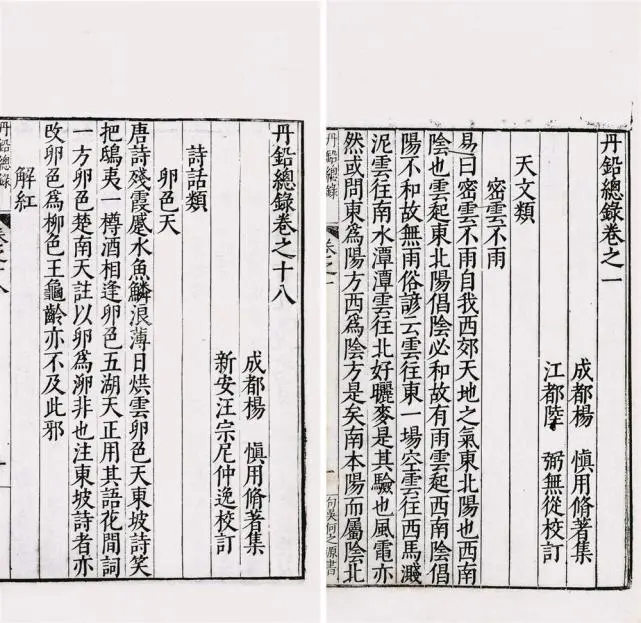 丹鉛總錄卷之一
成都楊　慎用脩著集
江都陸　弼無從校訂
天文類
密雲不雨
易曰密雲不雨自我西郊天地之氣東北陽也西南
陰也雲起東北陽倡陰必和故有雨雲起西南陰倡
陽不和故無雨俗諺云雲往東一場空雲往西馬濺
泥雲往南水潭潭雲往北好曬麥是其驗也風電亦
然或問東爲陽方西爲陰方是矣南本陽而屬陰北
丹鉛總錄
卷之一
一
句吳何之源書
丹鉛總錄卷之十八
成都楊　慎用脩著集
新安汪宗尼仲逸校訂
詩話類
卵色天
唐詩殘霞蹙水魚鱗浪薄日烘雲卵色天東坡詩笑
把鴟夷一樽酒相逢卵色五湖天正用其語花間詞
一方卵色楚南天註以卵爲泖非也注東坡詩者亦
改卵色爲柳色王龜齡亦不及此邪
解紅
丹鉛總錄
卷之十八
一